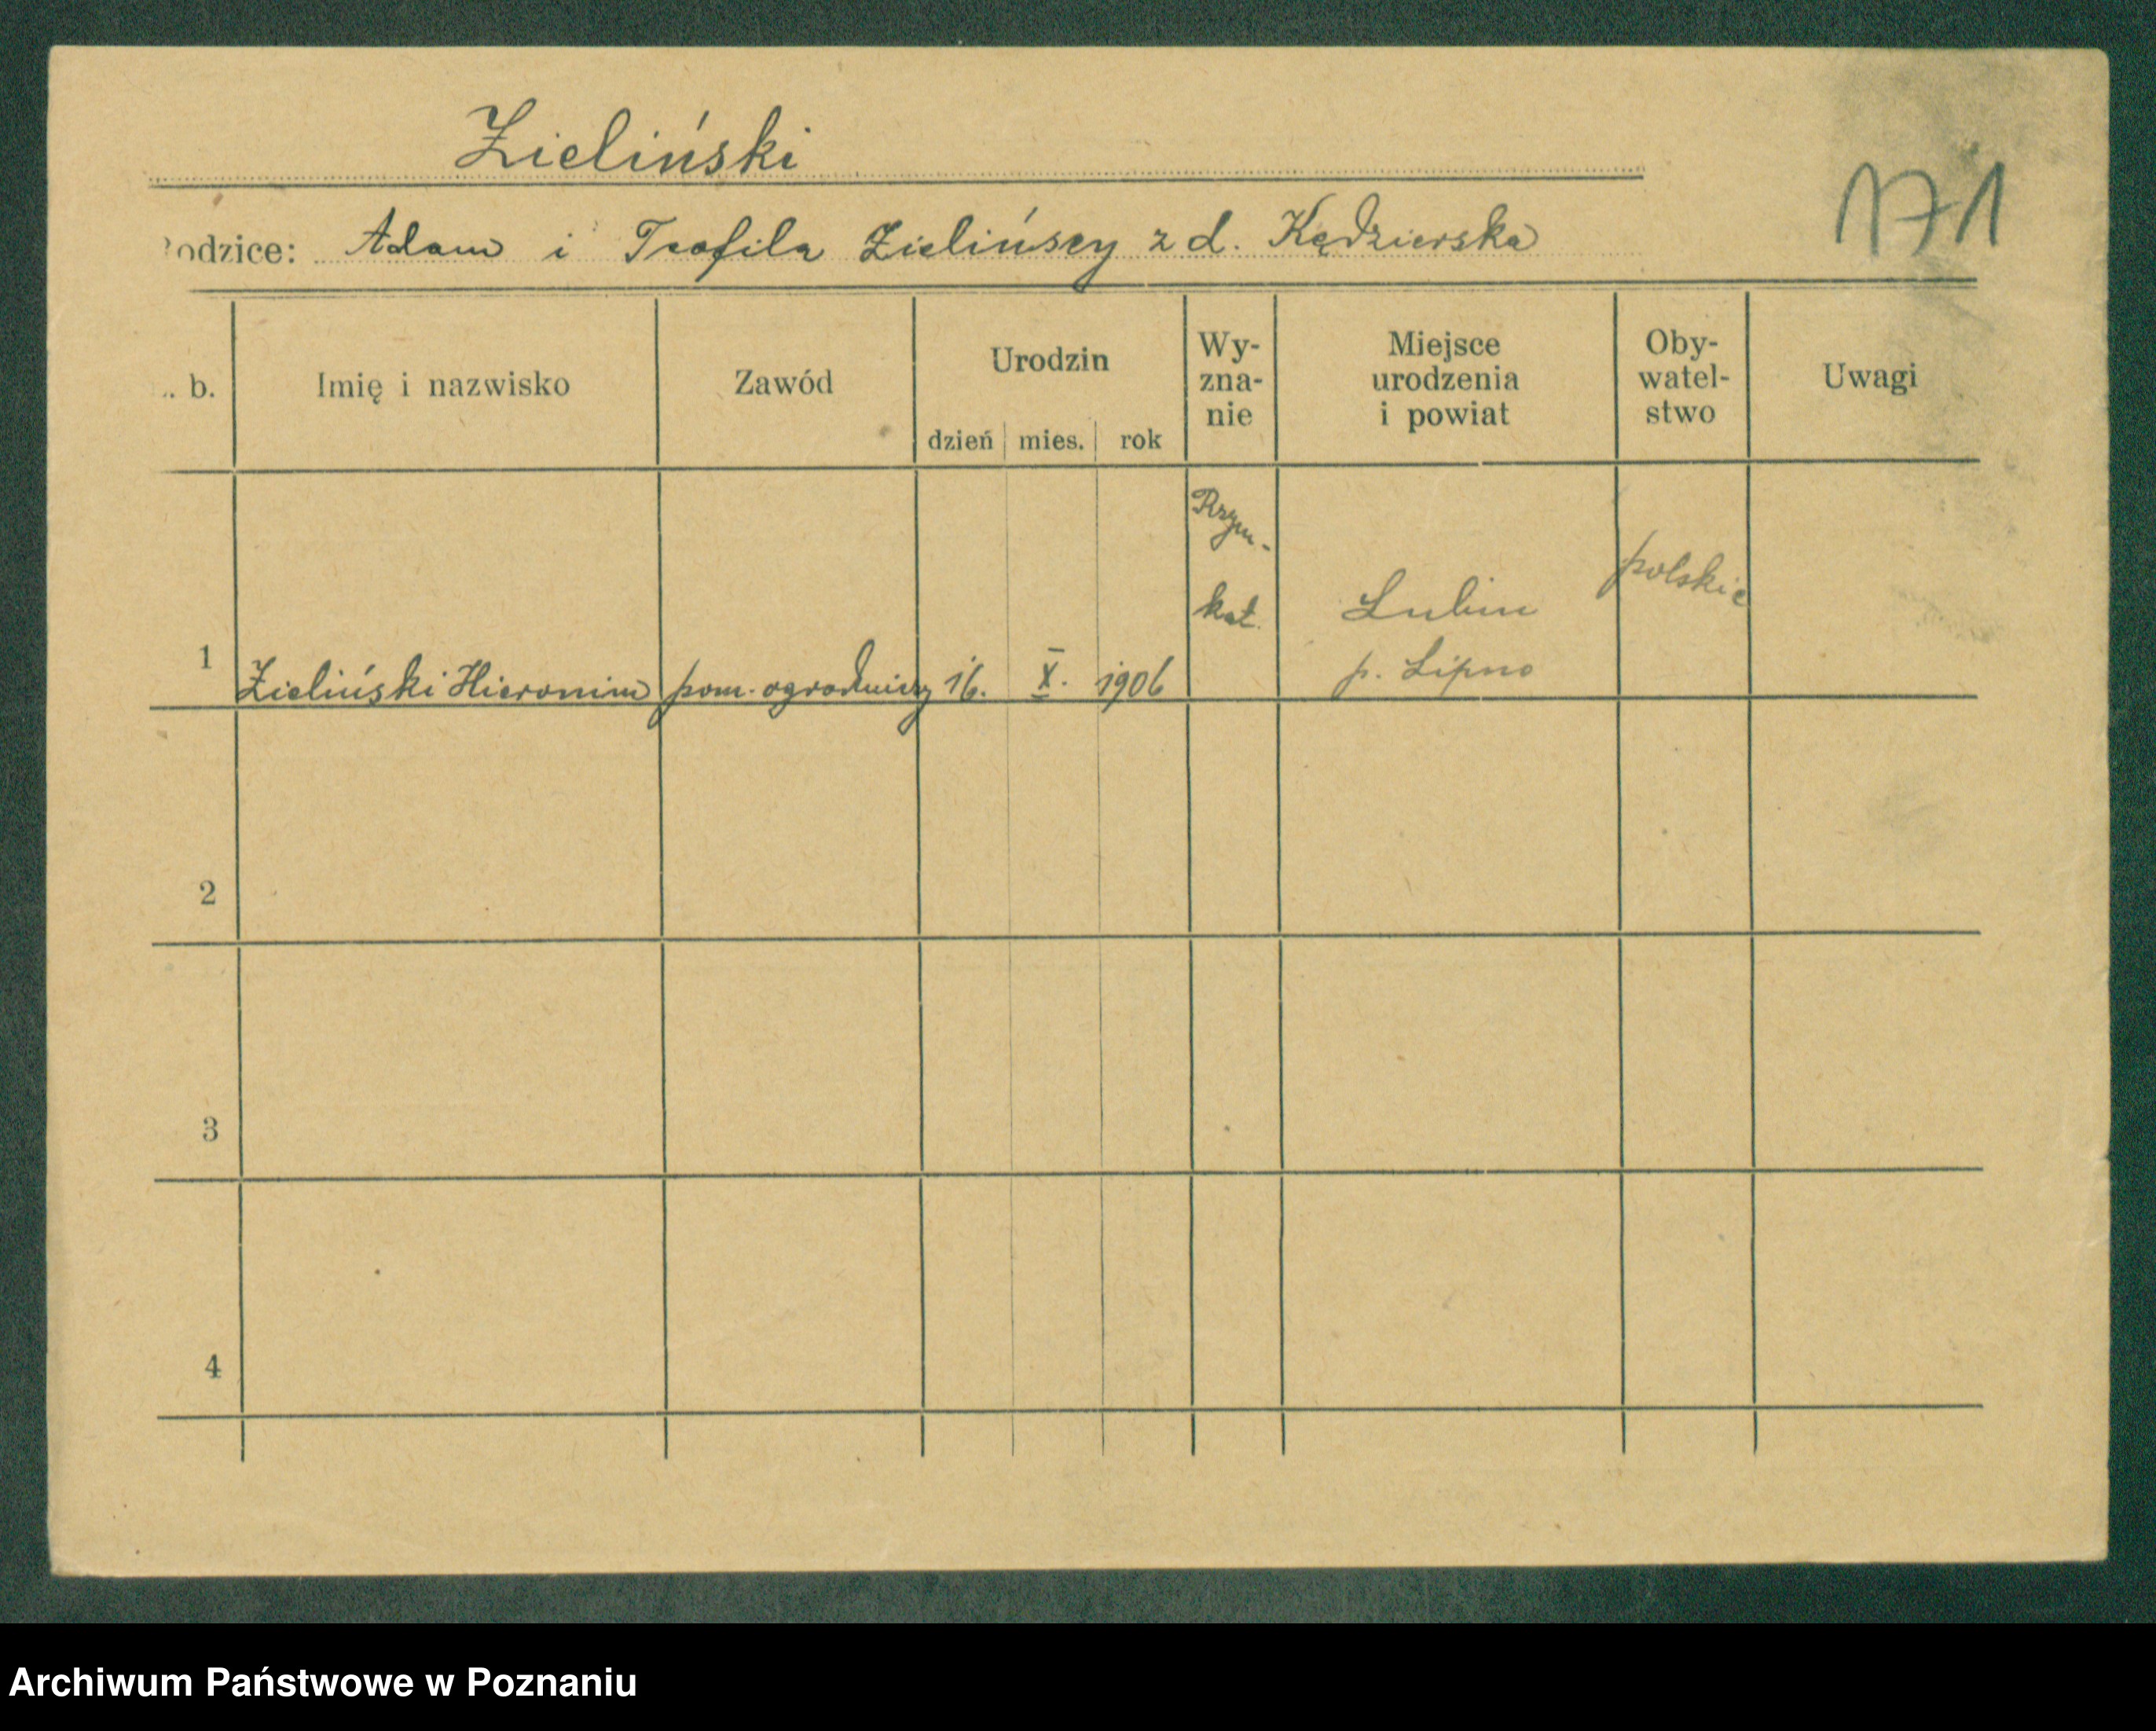 Zieliński
Rodzice: Adam i Teofila Zielińscy z d. Kędzierska
171
. b.
Imię i nazwisko
Zawód
Urodzin
dzień mies. rok
Wy-
zna-
nie
Miejsce
urodzenia
i powiat
Oby-
watel-
stwo
Uwagi
1
Zieliński Hieronim
pom. ogrodniczy
16. X. 1906
Rzym.-
kat.
Lubin
p. Lipno
polskie
2
3
4
Archiwum Państwowe w Poznaniu